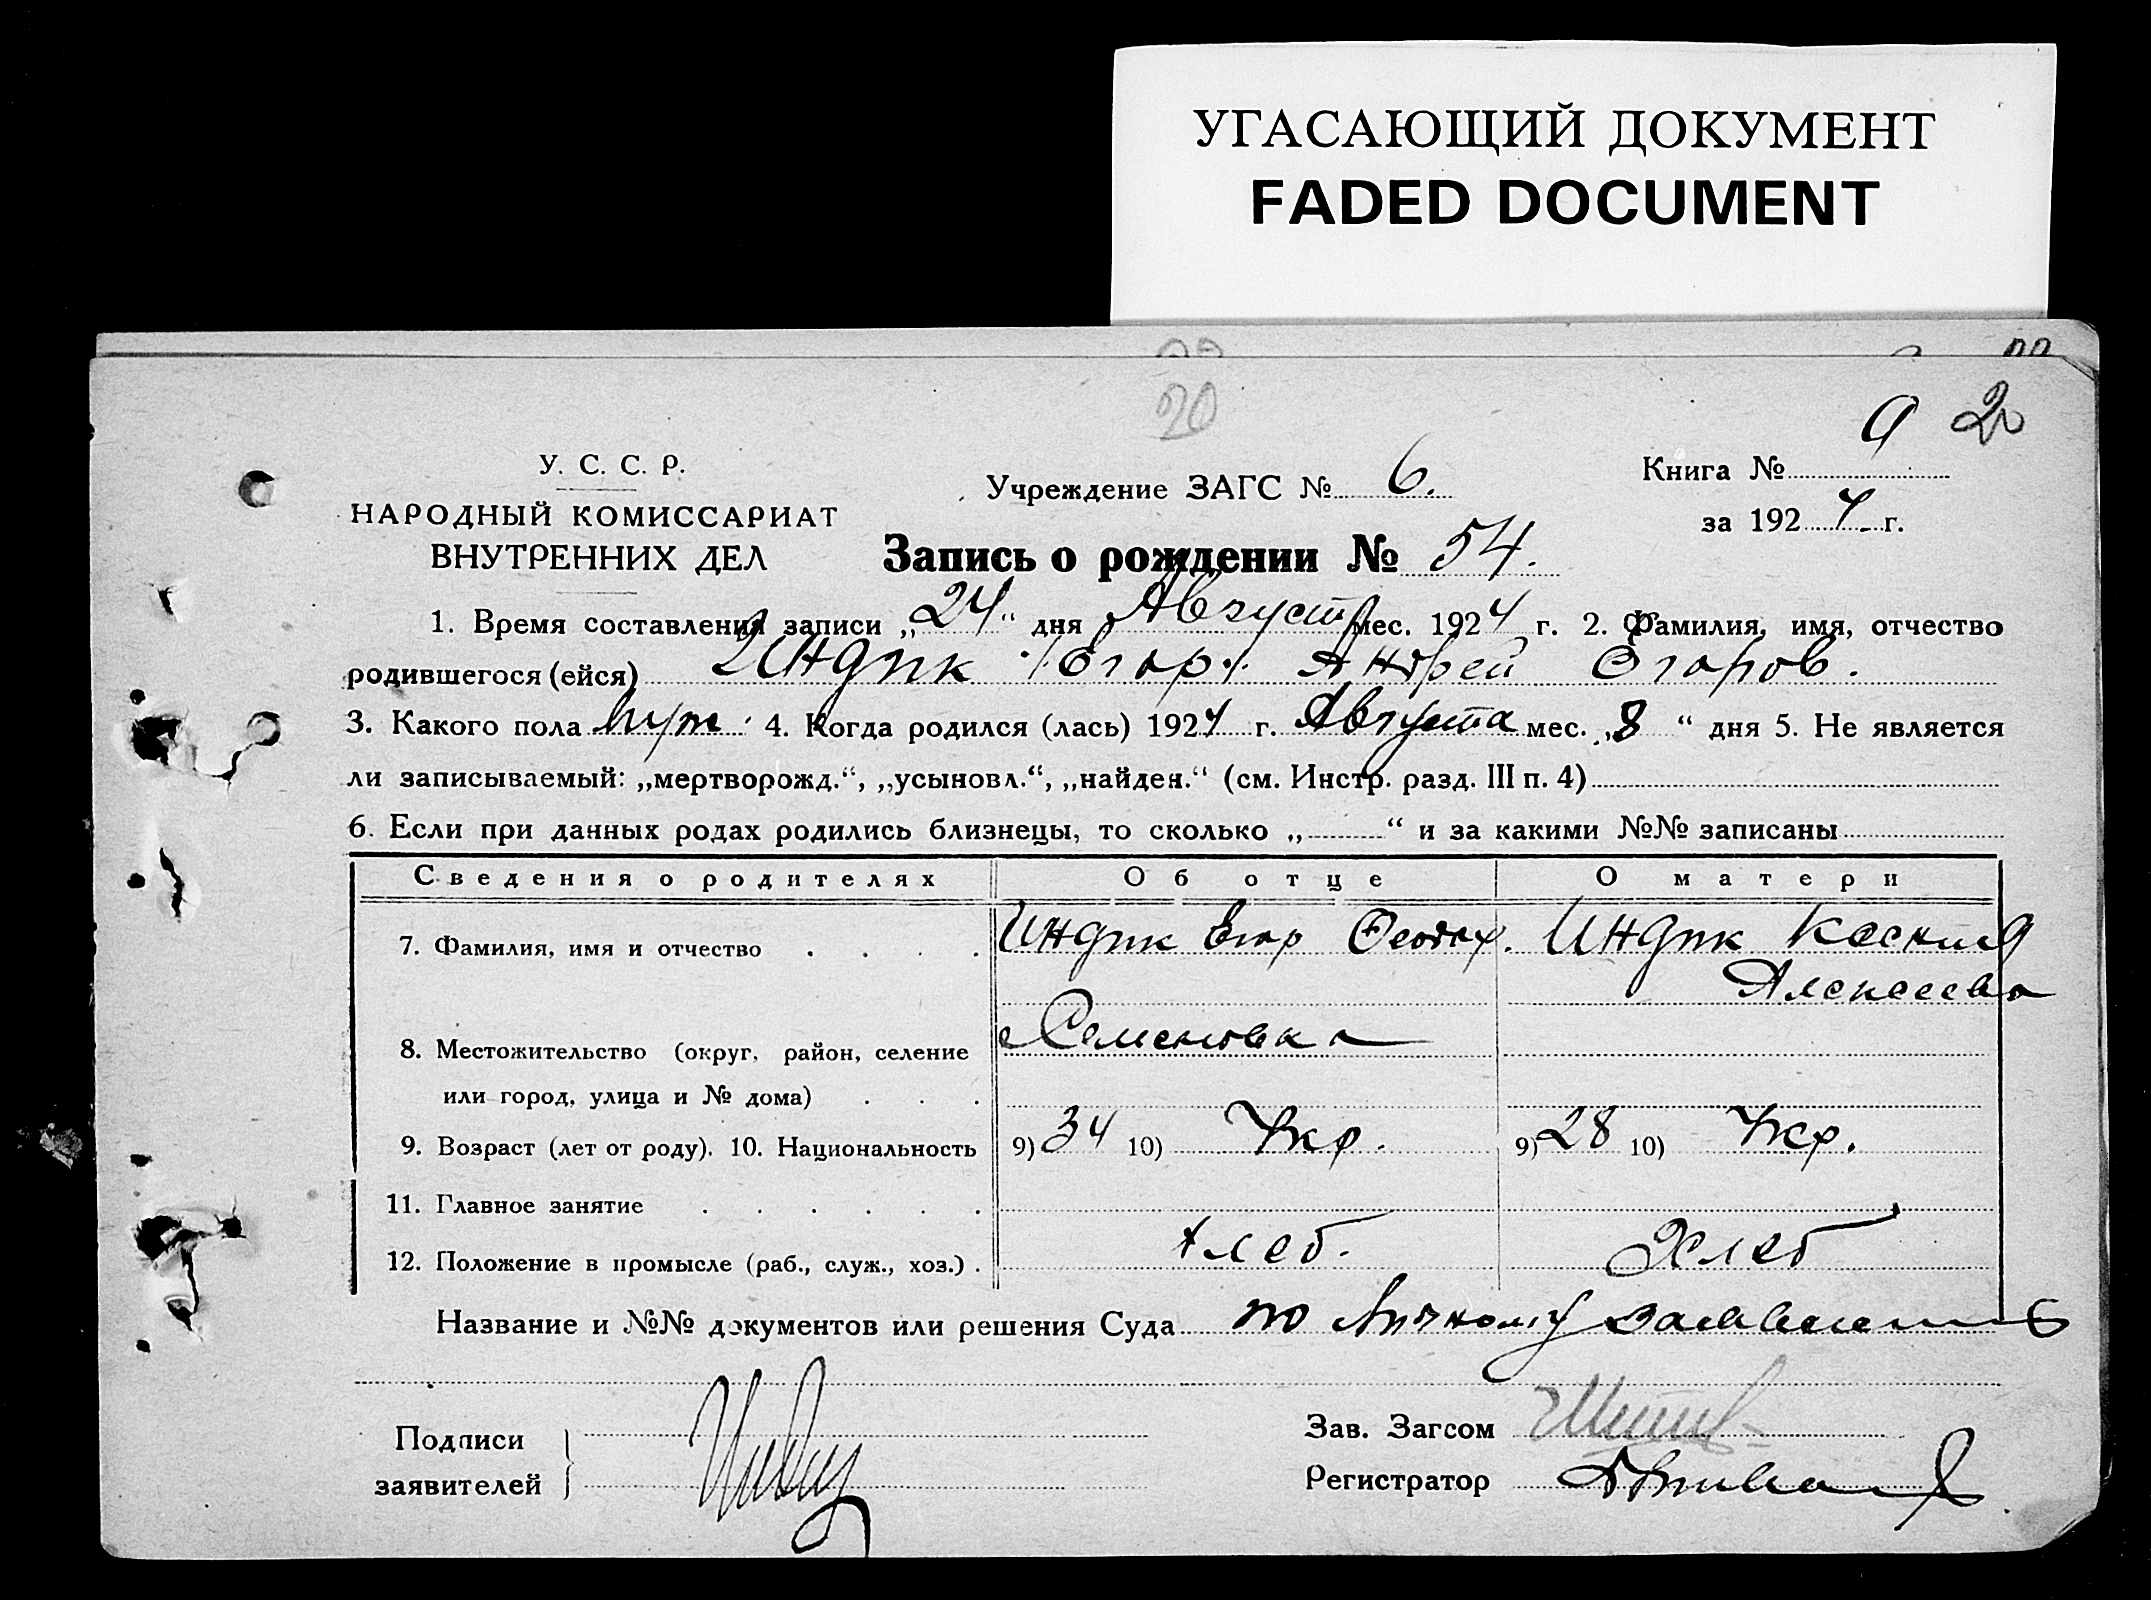 УГАСАЮЩИЙ ДОКУМЕНТ
FADED DOCUMENT
20
2
У. С. С. Р.
НАРОДНЫЙ КОМИССАРИАТ
ВНУТРЕННИХ ДЕЛ
Учреждение ЗАГС № 6.
Книга № 9
за 1924 г.
Запись о рождении № 54.
1. Время составления записи „24“ дня Август мес. 1924 г. 2. Фамилия, имя, отчество
родившегося (ейся) Индик /Егор/ Андрей Егоров.
3. Какого пола муж. 4. Когда родился (лась) 1924 г. Августа мес. „8“ дня 5. Не является
ли записываемый: „мертворожд.“, „усыновл.“, „найден.“ (см. Инстр. разд. III п. 4)
6. Если при данных родах родились близнецы, то сколько „ “ и за какими №№ записаны
Сведения о родителях Об отце О матери
7. Фамилия, имя и отчество Индик Егор Феодор. Индик
Алексеева
8. Местожительство (округ, район, селение Семеновка
или город, улица и № дома)
9. Возраст (лет от роду). 10. Национальность 9) 34 10) Укр. 9) 28 10) Укр.
11. Главное занятие
12. Положение в промысле (раб., служ., хоз.) Хлеб. Хлеб
Название и №№ документов или решения Суда по личному заявлению
Подписи
заявителей
Зав. Загсом
Регистратор